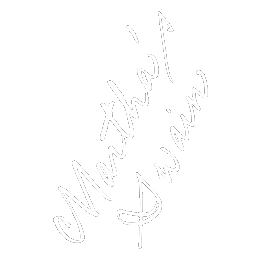 Martha's
Dwain